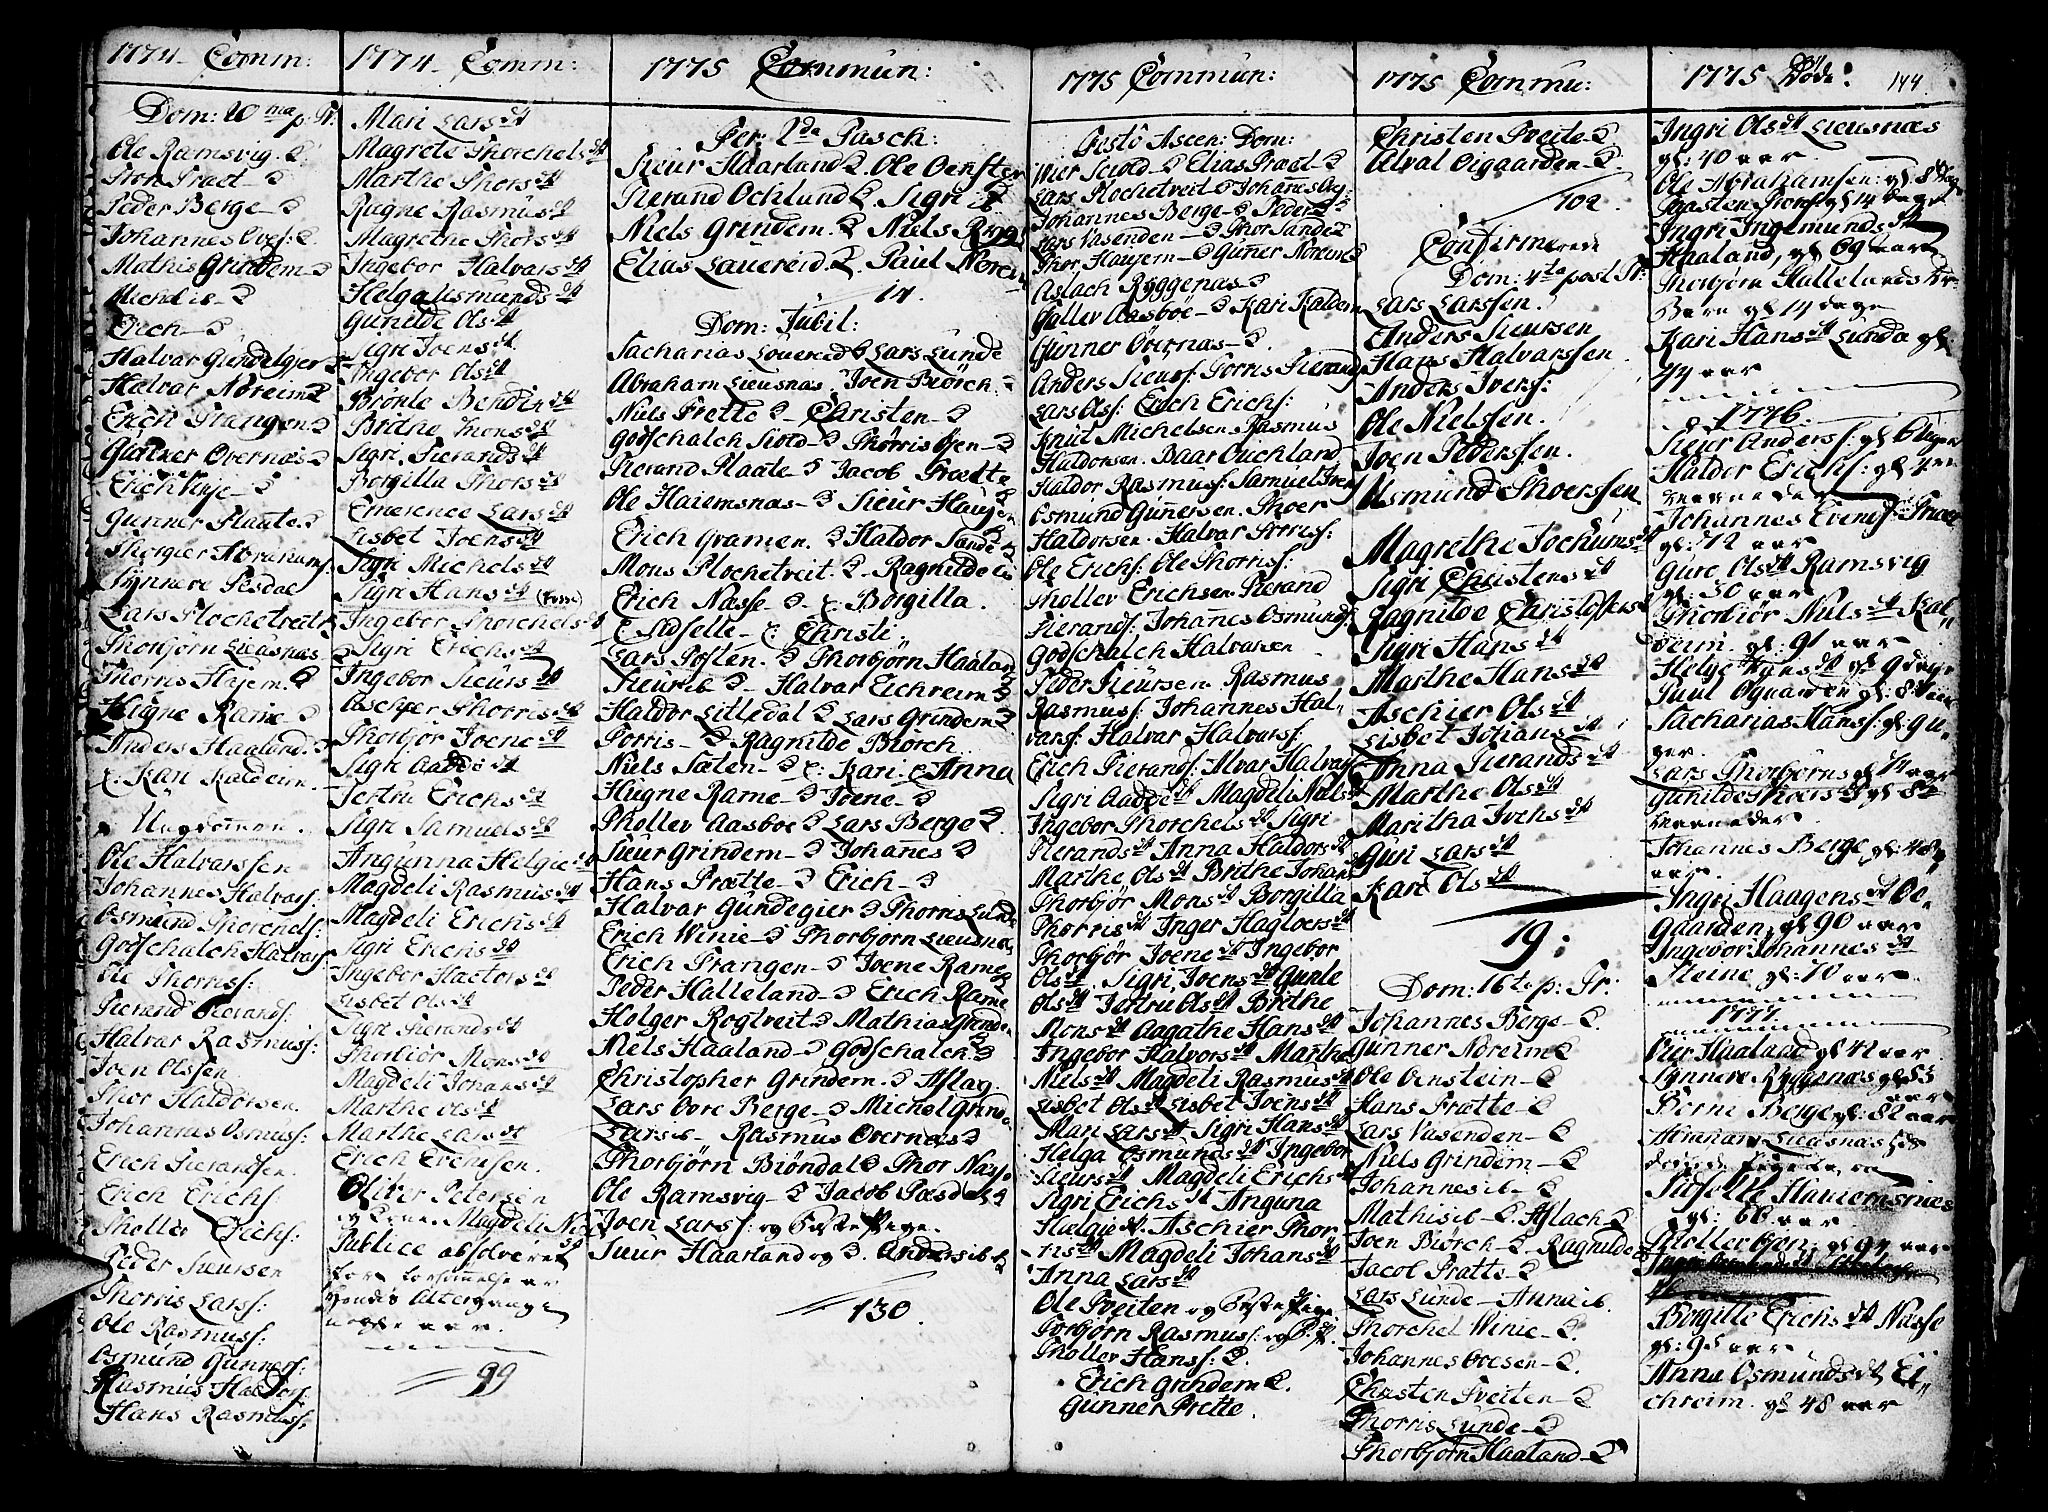 1774 Comm:
Dom: 20 ma p. Tr.
Ole Ramsvig
Peder Berge
Johannes Oves:
Mathis Grindem
Michel ib
Erich
Halvar Gundelgjer
Halvar Noreim
Erich Prangen
Gunner Overnæs
Gunner Plaate
Thorgier Abrahams:
Synneve Pesdal
Lars Plochetveit
Thorbjørn Lieusnæs
Thorris Hajem
Hugne Rame
Anders Haaland
Kari Kaldeim
Ungdommen
Ole Halvarssen
Johannes Halvarsf:
Osmund Thorends:
Godschalch Halvarsf
Ole Thorrisf:
Sierand Sierandsf:
Halvar Rasmusf:
Joen Olssen
Thor Haldorsen
Johannes Osmusf:
Erich Sierandsen
Erich Erichsf:
Tholler Erichsf:
Peder Sieursen
Thorris Larsf:
Ole Rasmusf:
Osmund Gunnersf:
Rasmus Haldorsf:
Hans Rasmusf:
1774 Comm:
Mari Larsdt
Magrete Thorchelsdt
Marthe Thorsdt
Rugne Rasmusdt
Magrethe Thorsdt
Ingebor Halvarsdt
Helga Usmundsdt
Gunilde Olsdt
Sigri Joensdt
Ingebor Olsdt
Brønle Bendixdt
Brithe Monsdt
Sigri Sierandsdt
Borgilla Thorsdt
Emerence Larsdt
Lisbet Joensdt
Sigri Michelsdt
Sigri Hansdt (Fosse)
Ingebor Thorchelsdt
Sigri Erichsdt
Ingebor Sieursdt
Aschier Thorrisdt
Thorbjør Joenedt
Sigri Aadedt
Jertru Erichsdt
Sigri Samuelsdt
Angunna Helgiedt
Magdeli Rasmusdt
Magdeli Erichsdt
Sigri Erichsdt
Ingebor Hactorsdt
Lisbet Olsdt
Sigri Sierandsdt
Thorbiør Monsdt
Magdeli Johansdt
Marthe Olsdt
Marthe Larsdt
Erich Erichsen
Oliver Petersen
og Kone Magdeli
Publice absolveret
for forsømmelse
Hendis Altergang
nogle aar
99
1775 Commun:
Fer: 2da Pasch:
Sieur Haarland. Ole Oensten
Sierand Ochlund. Sigri ib
Niels Grindem. Niels Rygg
Elias Lauereid. Paul Noreim
14.
Dom: Jubil:
Sacharias Lovereid Lars Lunde
Abraham Lieusnas. Joen Biørch
Niels Prette. Christen
Godschalch Siold. Thørris Øjen
Sierand Plaate. Jacob Prætte
Ole Haiemsnas. Sieur Haugen
Erich Qvamen. Haldor Sande
Mons Plochetveit. Ragnilde ib
Erich Næsse. Borgilla.
E. Sidselle. Christi
Lars Posten. Thorbjørn Haaland
Sieur ib. Halvar Eichreim
Haldor Litledal. Lars Grindem
Porris. Ragnilde Biørch
Niels Sæten. Kari. Anna
Hugne Rame. Joene
Tholler Aasboe. Lars Berge
Sieur Grindem. Johanes
Hans Prætte. Erich
Halvar Gundegier. Thorris Lunde
Erich Winie. Thorbjørn Lieusnæs
Erich Prangen. Joene Rame
Peder Halleland. Erich Rame
Holger Rogtveit. Mathias Grindem
Niels Haaland. Godschalch
Christopher Grindem. Aslag
Lars Oere Berge. Michel Grindem
Lars ib. Rasmus Overnæs
Thorbjørn Biøndal. Thor Næsse
Ole Ramsvig. Jacob Pæsdal
Joen Larsf: og Feste Pige
Sieur Haarland og Anders ib
130.
1775 Commun:
Festo Ascen: Dom:
Lars Plochetveit. Johanes
Johannes Berge. Peder
Lars Vasenden. Thor Sande
Thor Haugem. Gunner Noreim
Aslach Ryggenas
Tholler Aasboe. Kari Kaldem
Gunner Overnas
Anders Sieursf: Porris Sierands
Lars Olsf: Erich Erichsf:
Knut Michelsen Rasmus
Haldorsen. Baar Ouchland
Haldor Rasmusf: Samuel Ivers
Osmund Gunersen. Thoer
Haldorsen. Halvar Porrisf:
Ole Erichsf: Ole Thorrisf:
Tholler Erichsen Sierand
Sierandsf: Johannes Osmundsf:
Godschalch Halvarsen
Peder Sieursen. Rasmus
Rasmusf: Johannes Hal-
varsf: Halvar Halvarsf:
Erich Sierandsf: Alvar Halvarsf
Sigri Aadedt Magdeli Nielsdt
Ingebor Thorchelsdt Sigri
Sierandsdt Anna Haldorsdt
Marthe Olsdt Brithe Johansdt
Thorbjør Monsdt Borgilla
Thorrisdt Inger Hagtoersdt
Thorbjør Joenedt Ingebor
Olsdt Sigri Joensdt Gunle
Olsdt Jertru Olsdt Brithe
Monsdt Aagathe Hansdt
Ingebor Halvorsdt Marthe
Nielsdt Magdeli Rasmusdt
Lisbet Olsdt Lisbet Joensdt
Mari Larsdt Sigri Hansdt
Helga Osmundsdt Ingebor
Sieursdt Magdeli Erichsdt
Sigri Erichsdt Anguna
Hælgiedt Aschier Thor-
risdt Magdeli Johansdt
Anna Larsdt
Ole Tveiten og Feste Pige
Torbjørn Rasmusf: og F. P.
Tholler Hansf:
Erich Grindem
Gunner Prette
1775 Commu:
Christen Tveite
Alval Oigaarden
102.
Confirmerede
Dom: 4ta post Tr:
Lars Larssen.
Anders Sieursen
Hans Halvarssen
Anders Iversf:
Ole Nielsen.
Joen Pederssen.
Usmund Thoerssen
Magrethe Jochumsdt
Sigri Christensdt
Ragnilde Christophersdt
Sigri Hansdt
Marthe Hansdt
Aschier Olsdt
Lisbet Johansdt
Anna Sierandsdt
Marthe Olsdt
Maritha Ivensdt
Guri Larsdt
Kari Olsdt
19:
Dom: 16 te p: Tr:
Johannes Berge
Gunner Noreim
Ole Oenstein
Hans Prætte
Lars Vasenden
Niels Grindem
Johannes ib
Mathis ib. Aslach
Joen Biørch. Ragnilde
Jacob Pratte
Lars Lunde. Anna ib.
Thorchel Winie
Johannes Ooesen
Christen Tveiten
Thorris Lunde
Thorbjørn Haaland
1775 Døde: 144
Ingri Olsdt Lieusnæs
gl: 40 aar.
Ole Abrahamsen: gl: 8 dage
Torsten Thorsf gl 14 dage
Ingri Ingemundsdt
Haaland, gl 69 aar
Thorbjørn Hallelands
Barn gl 14 dage
Kari Hansdt Lunde gl:
74 aar
1776.
Sieur Andersf: gl 6 uger
Haldor Erichsf: gl
maaneder
Johannes Evensf:
gl: 72 aar
Gure Olsdt Ramsvig
gl: 30 aar
Thorbiør Nielsdt Kal-
deim. gl: 91 aar
Helge gl 9 dage
Paul Ognamen gl: 8
Sacharias Hansf: gl 9 u-
ger
Lars Thorbjørns gl 74 aar
Gunilde Thorsdt gl 8
maaneder
Johannes Berge gl: 48
aar
Ingri Haagensdt Oe-
Gaarden, gl 90 aar
Ingebor Johannesdt
Steine gl: 70 aar
1777
Vier Haaland gl 42 aar
Synneve Ryggenæs gl 53
Berne Berge gl: 82 aar
Abraham Lieusnæs
Sidselle Haiemsnæs
gl: 66 aar
Tholler Øjen: gl 97 aar
Borgille Erichsdt Næsse
gl: 95 aar
Anna Osmundsdt Ei-
chreim. gl 48 aar